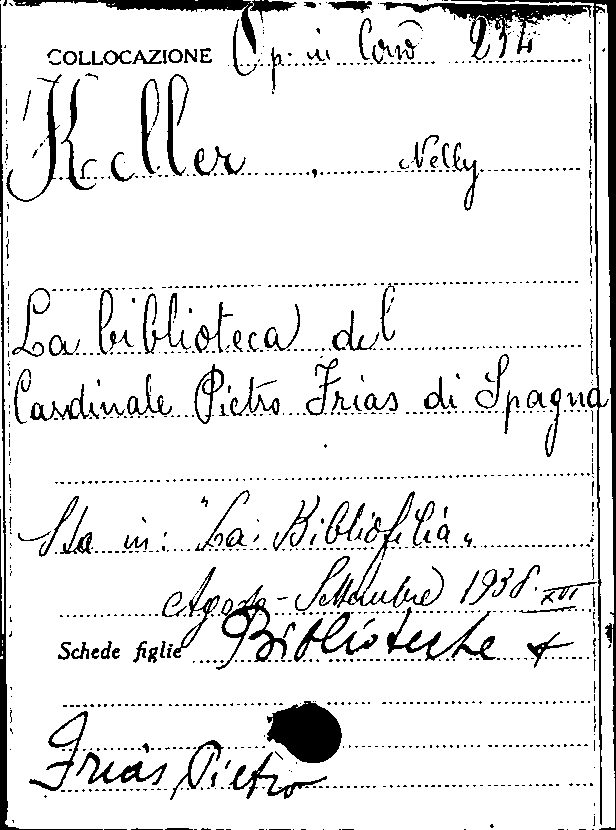 COLLOCAZIONE Op. in Cons 234
Keller, Nelly
La biblioteca del
Cardinale Pietro Frias di Spagna
Sta in: "La Bibliofilia"
Agosto-Settembre 1938 XVI
Schede figlie Biblioteche +
Frias, Pietro